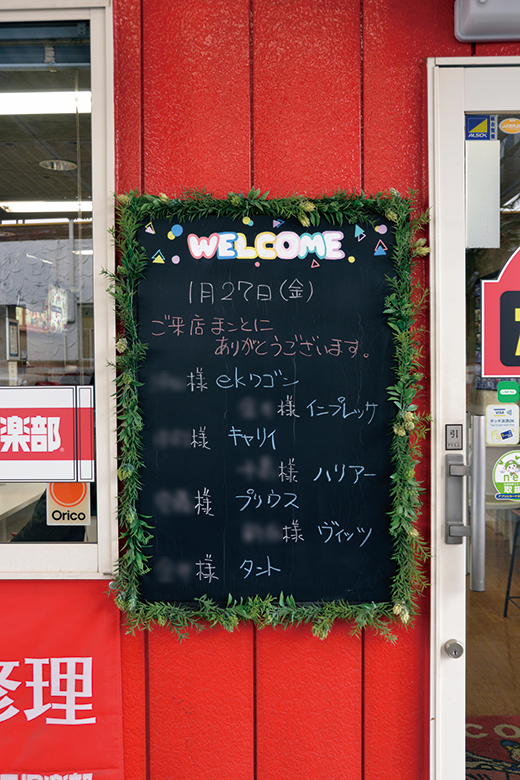 WELCOME
1月27日(金)
ご来店まことに
ありがとうございます。
様 ekワゴン
様 インプレッサ
様 キャリイ
様 ハリアー
様 プリウス
様 ヴィッツ
様 タント
ALSOK
倶楽部
Orico
引
PULL
VISA
修理